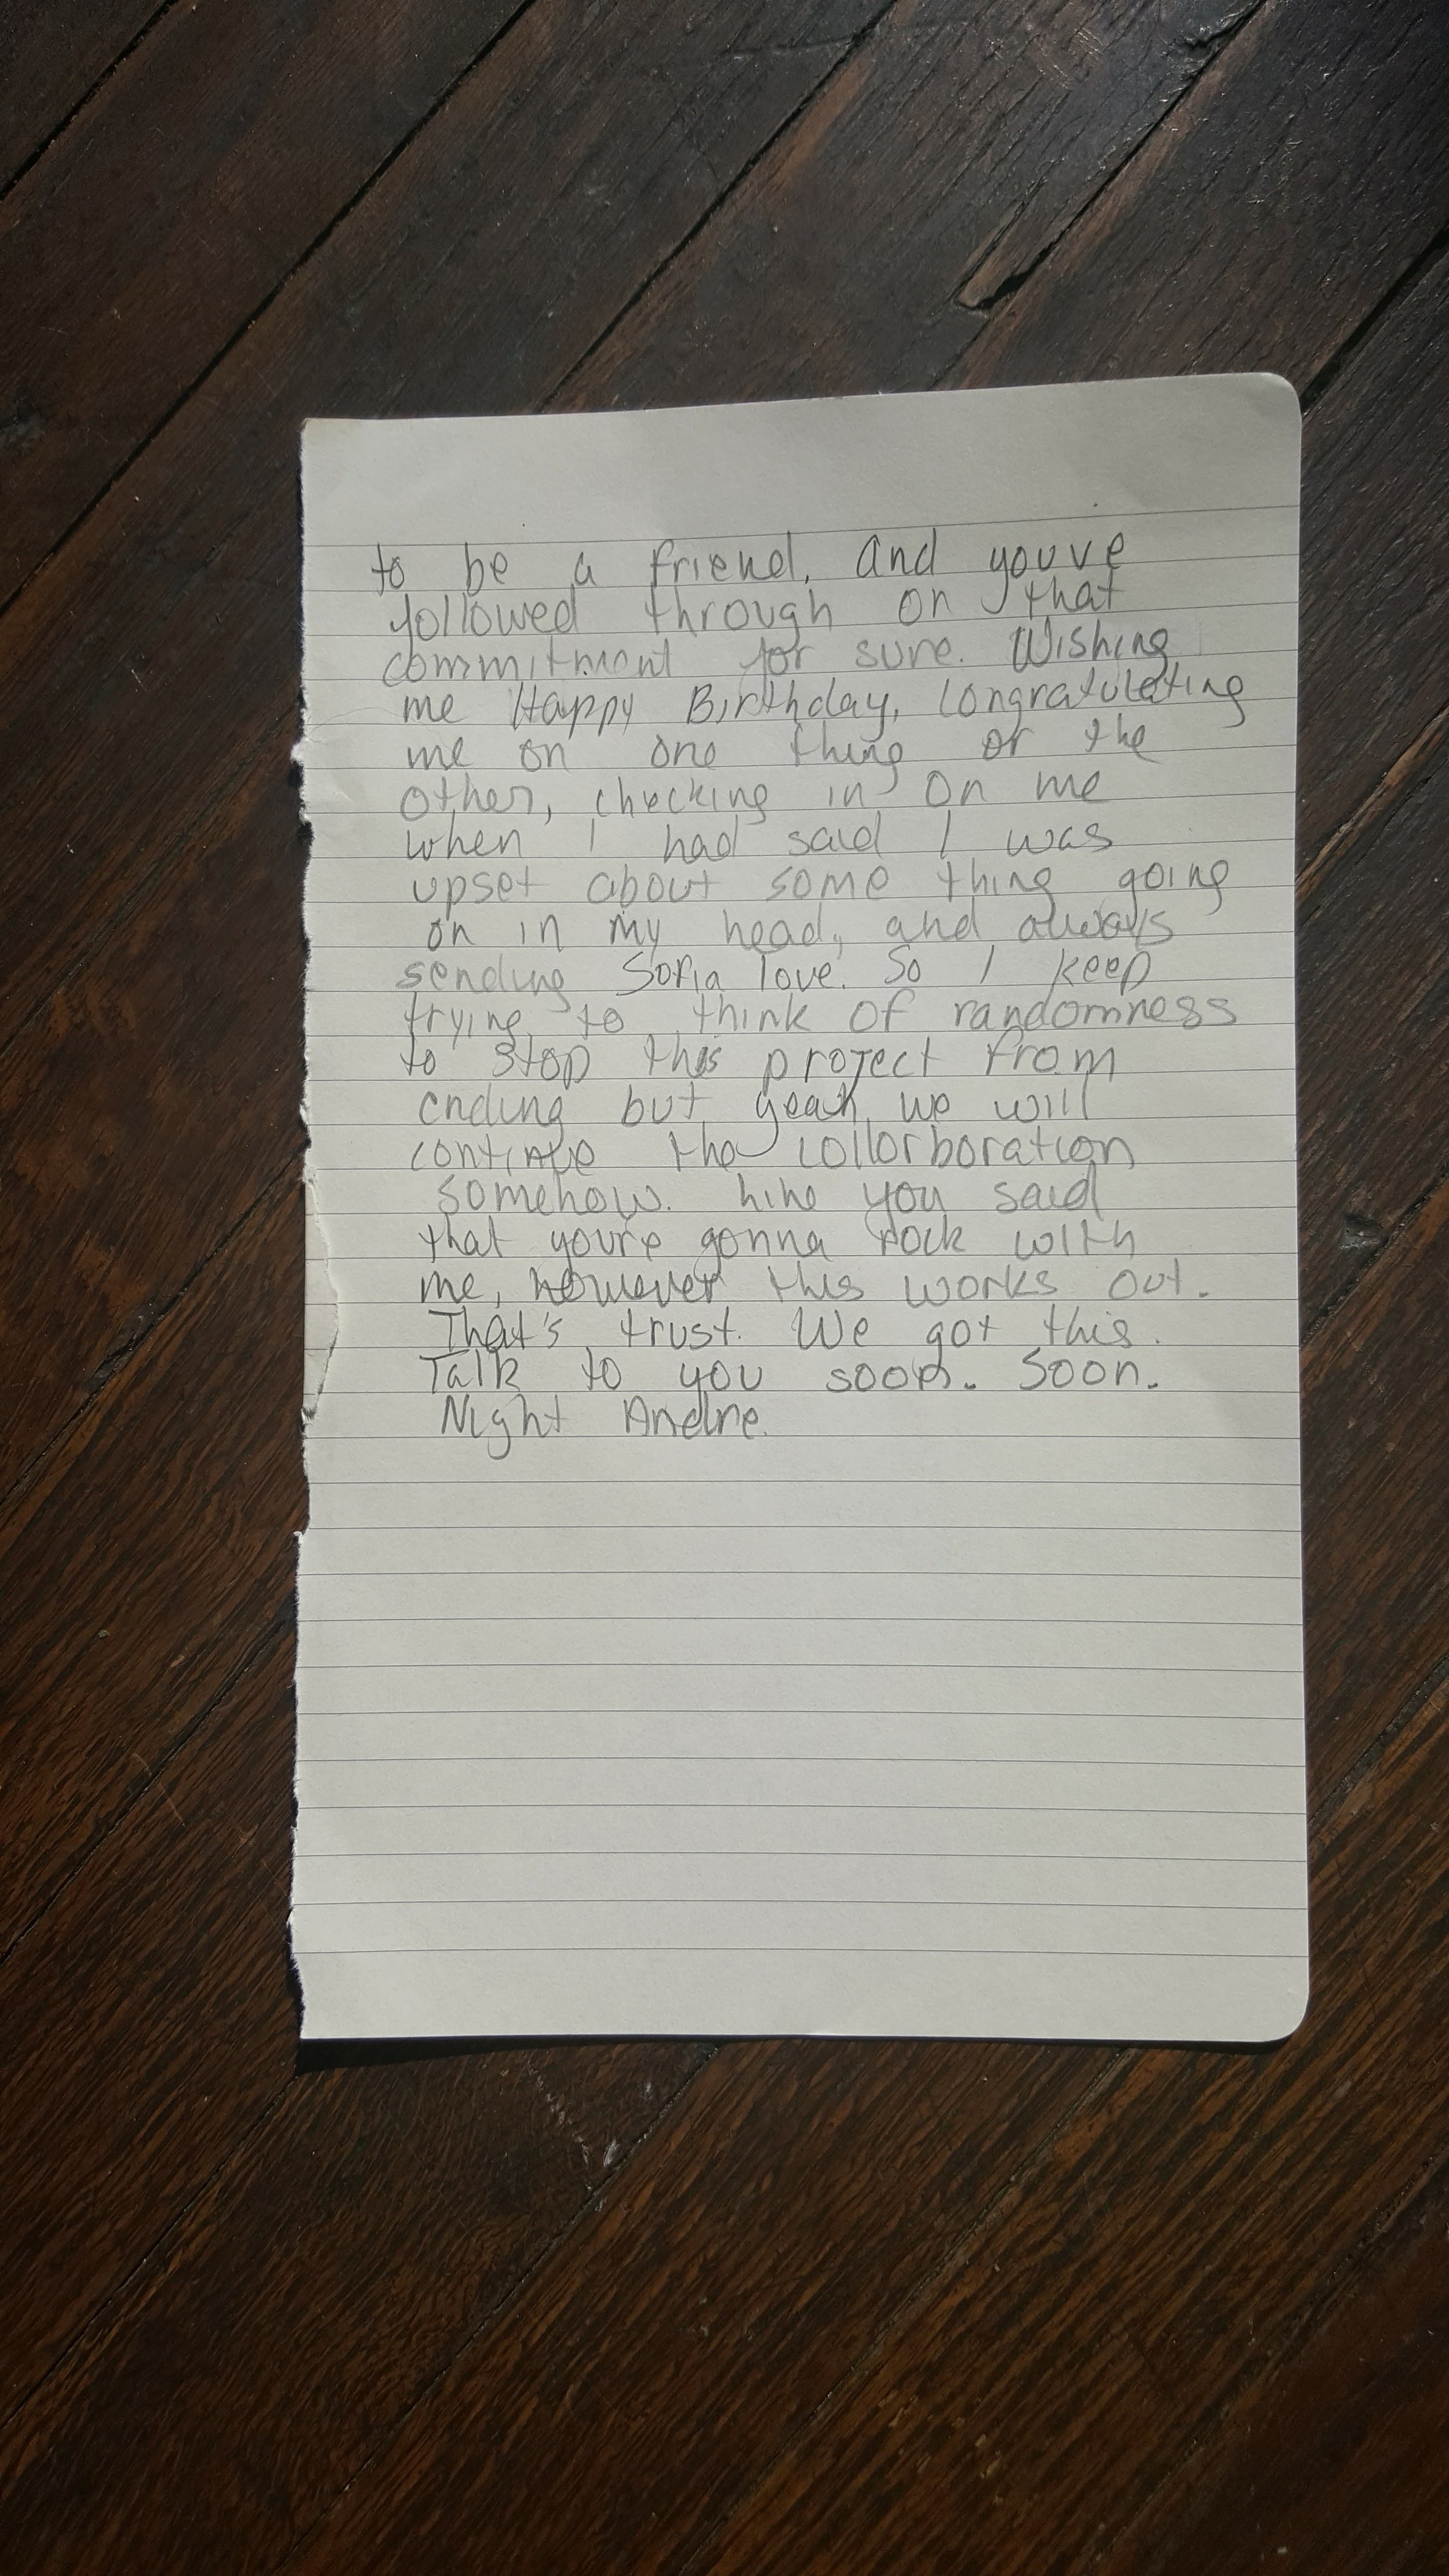 to be a friend, and youve
followed through on that
commitment for sure. Wishing
me Happy Birthday, Congratulating
me on one thing or the
other, checking in on me
when I had said I was
upset about some thing going
on in my head, and always
sending Sofia love. So I keep
trying to think of randomness
to stop this project from
ending but yeah we will
continue the collorboration
somehow. Like you said
that you're gonna rock with
me, however this works out.
That's trust. We got this.
Talk to you soon. Soon.
Night Andre.